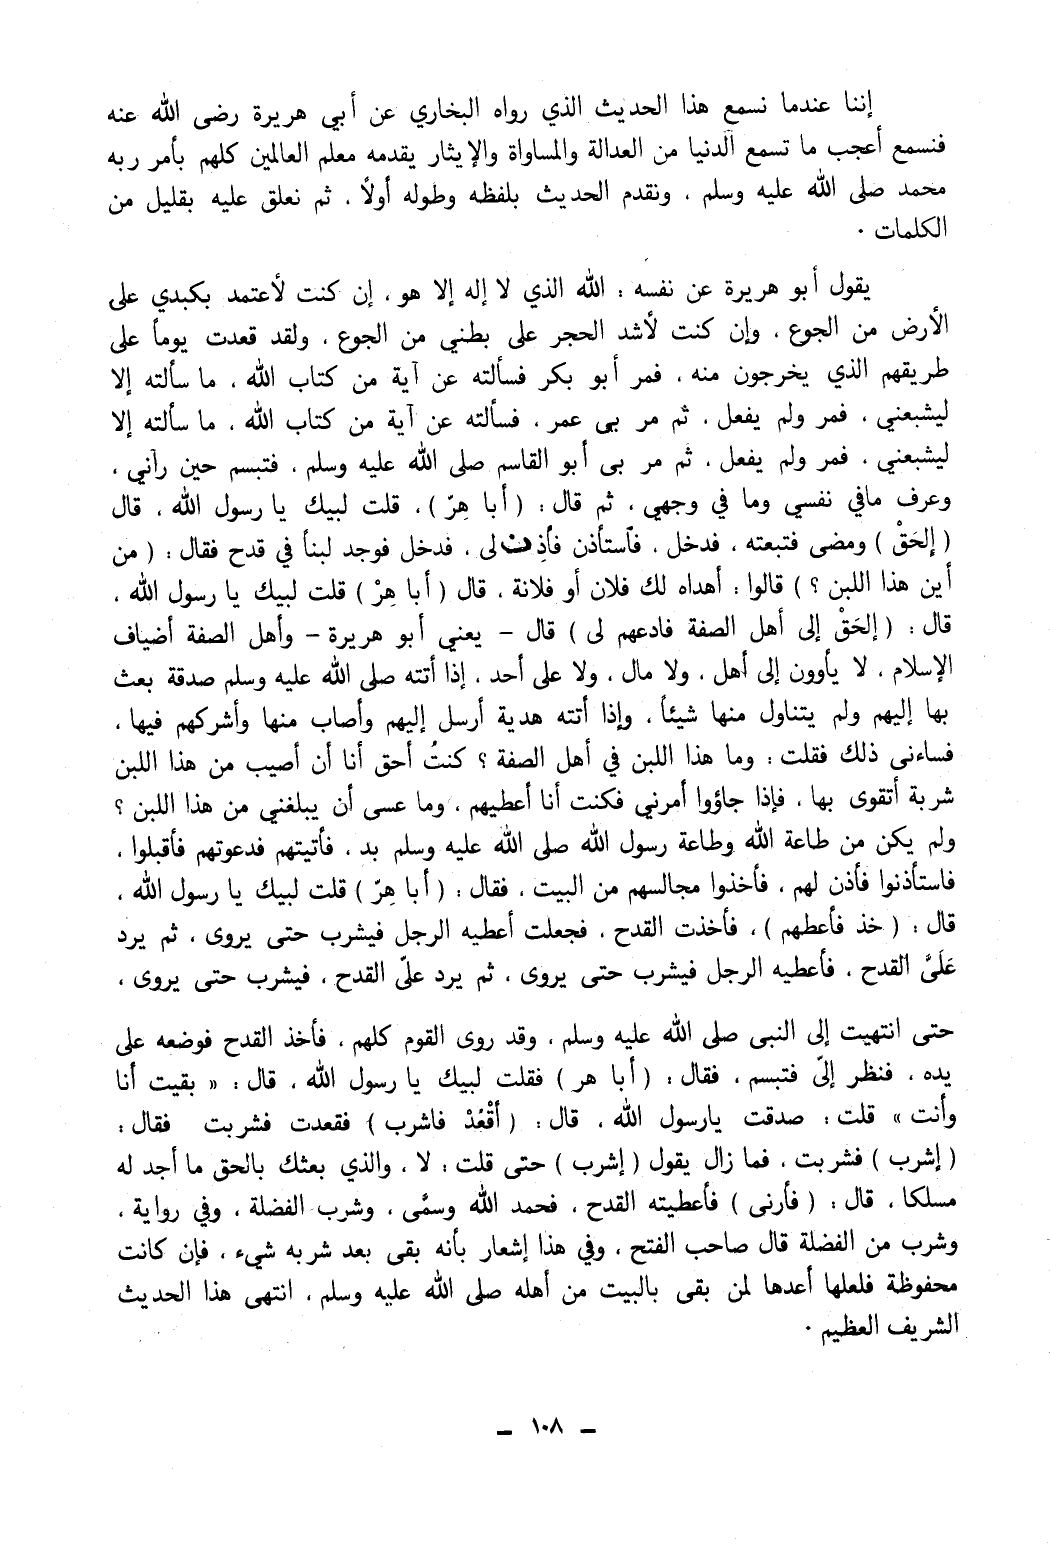 إننا عندما نسمع هذا الحديث الذي رواه البخاري عن أبي هريرة رضى الله عنه
فنسمع أعجب ما تسمع الدنيا من العدالة والمساواة والإيثار يقدمه معلم العالمين كلهم بأمر ربه
محمد صلى الله عليه وسلم ، ونقدم الحديث بلفظه وطوله أولاً ، ثم نعلق عليه بقليل من
الكلمات .
يقول أبو هريرة عن نفسه : الله الذي لا إله إلا هو ، إن كنت لأعتمد بكبدي على
الأرض من الجوع ، وإن كنت لأشد الحجر على بطني من الجوع ، ولقد قعدت يوماً على
طريقهم الذي يخرجون منه ، فمر أبو بكر فسألته عن آية من كتاب الله ، ما سألته إلا
ليشبعني ، فمر ولم يفعل ، ثم مر بى عمر ، فسألته عن آية من كتاب الله ، ما سألته إلا
ليشبعني ، فمر ولم يفعل ، ثم مر بى أبو القاسم صلى الله عليه وسلم ، فتبسم حين رآني ،
وعرف مافي نفسي وما في وجهي ، ثم قال : ( أبا هِرّ ) ، قلت لبيك يا رسول الله ، قال
( إلحَقْ ) ومضى فتبعته ، فدخل ، فآستأذن فأذِن لى ، فدخل فوجد لبنأ في قدح فقال : ( من
أين هذا اللبن ؟ ) قالوا : أهداه لك فلان أو فلانة ، قال ( أبا هِرْ ) قلت لبيك يا رسول الله ،
قال : ( إلحَقْ إلى أهل الصفة فادعهم لى ) قال – يعني أبو هريرة – وأهل الصفة أضياف
الإسلام ، لا يأوون إلى أهل ، ولا مال ، ولا على أحد ، إذا أتته صلى الله عليه وسلم صدقة بعث
بها إليهم ولم يتناول منها شيئاً ، وإذا أتته هدية أرسل إليهم وأصاب منها وأشركهم فيها ،
فساءنى ذلك فقلت : وما هذا اللبن في أهل الصفة ؟ كنتُ أحق أنا أن أصيب من هذا اللبن
شربة أتقوى بها ، فإذا جاؤوا أمرني فكنت أنا أعطيهم ، وما عسى أن يبلغني من هذا اللبن ؟
ولم يكن من طاعة الله وطاعة رسول الله صلى الله عليه وسلم بد ، فأتيتهم فدعوتهم فأقبلوا ،
فاستأذنوا فأذن لهم ، فأخذوا مجالسهم من البيت ، فقال : ( أبا هِرّ ) قلت لبيك يا رسول الله ،
قال : ( خذ فأعطهم ) ، فأخذت القدح ، فجعلت أعطيه الرجل فيشرب حتى يروى ، ثم يرد
عَلَىَّ القدح ، فأعطيه الرجل فيشرب حتى يروى ، ثم يرد علىّ القدح ، فيشرب حتى يروى ،
حتى انتهيت إلى النبى صلى الله عليه وسلم ، وقد روى القوم كلهم ، فأخذ القدح فوضعه على
يده ، فنظر إلىّ فتبسم ، فقال : ( أبا هر ) فقلت لبيك يا رسول الله ، قال : « بقيت أنا
وأنت » قلت : صدقت يارسول الله ، قال : ( أقْعُدْ فاشرب ) فقعدت فشربت فقال :
( إشرب ) فشربت ، فما زال يقول ( إشرب ) حتى قلت : لا ، والذي بعثك بالحق ما أجد له
مسلكا ، قال : ( فأرنى ) فأعطيته القدح ، فحمد الله وسمَّى ، وشرب الفضلة ، وفي رواية ،
وشرب من الفضلة قال صاحب الفتح ، وفي هذا إشعار بأنه بقى بعد شربه شيء ، فإن كانت
محفوظة فلعلها أعدها لمن بقى بالبيت من أهله صلى الله عليه وسلم ، انتهى هذا الحديث
الشريف العظيم .
– ١٠٨ –